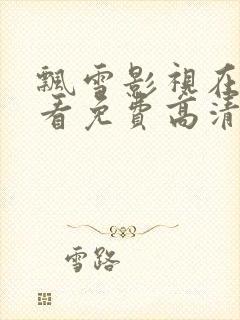 飄雪影視在
看免費高清
雪路